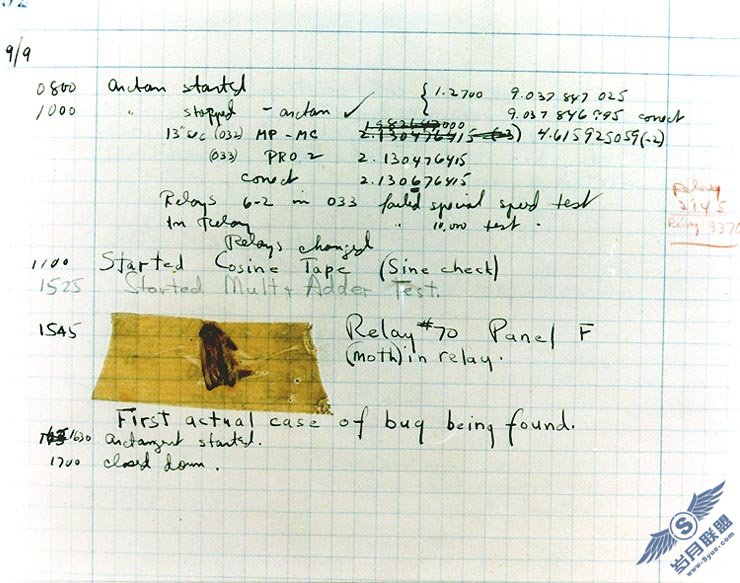 9/9
0800 arctan started { 1.2700 9.037 847 025
1000 " stopped - arctan ✓ 9.037 846 995 conect
13"uc (032) MP - MC 2.130476415 (-3) 4.615925059(-2)
(033) PRO 2 2.130476415
conect 2.130676415
Relays 6-2 in 033 failed special speed test
In Relay " 10,000 test .
Relay
2145
Relay 3370
Relays changed
1100 Started Cosine Tape (Sine check)
1525 Started Mult + Adder Test.
1545 Relay #70 Panel F
(moth) in relay.
First actual case of bug being found.
1630 arctangent started.
1700 closed down.
岁月联盟
www.Syue.com